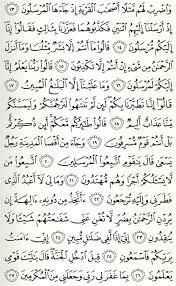 وَٱضْرِبْ لَهُم مَّثَلًا أَصْحَٰبَ ٱلْقَرْيَةِ إِذْ جَآءَهَا ٱلْمُرْسَلُونَ ١٣
إِذْ أَرْسَلْنَآ إِلَيْهِمُ ٱثْنَيْنِ فَكَذَّبُوهُمَا فَعَزَّزْنَا بِثَالِثٍ فَقَالُوٓا۟ إِنَّآ
إِلَيْكُم مُّرْسَلُونَ ١٤ قَالُوا۟ مَآ أَنتُمْ إِلَّا بَشَرٌ مِّثْلُنَا وَمَآ أَنزَلَ
ٱلرَّحْمَٰنُ مِن شَىْءٍ إِنْ أَنتُمْ إِلَّا تَكْذِبُونَ ١٥ قَالُوا۟ رَبُّنَا يَعْلَمُ إِنَّآ
إِلَيْكُمْ لَمُرْسَلُونَ ١٦ وَمَا عَلَيْنَآ إِلَّا ٱلْبَلَٰغُ ٱلْمُبِينُ ١٧
قَالُوٓا۟ إِنَّا تَطَيَّرْنَا بِكُمْ لَئِن لَّمْ تَنتَهُوا۟ لَنَرْجُمَنَّكُمْ وَلَيَمَسَّنَّكُم
مِّنَّا عَذَابٌ أَلِيمٌ ١٨ قَالُوا۟ طَٰٓئِرُكُم مَّعَكُمْ أَئِن ذُكِّرْتُم
بَلْ أَنتُمْ قَوْمٌ مُّسْرِفُونَ ١٩ وَجَآءَ مِنْ أَقْصَا ٱلْمَدِينَةِ رَجُلٌ
يَسْعَىٰ قَالَ يَٰقَوْمِ ٱتَّبِعُوا۟ ٱلْمُرْسَلِينَ ٢٠ ٱتَّبِعُوا۟ مَن
لَّا يَسْـَٔلُكُمْ أَجْرًا وَهُم مُّهْتَدُونَ ٢١ وَمَا لِىَ لَآ أَعْبُدُ
ٱلَّذِى فَطَرَنِى وَإِلَيْهِ تُرْجَعُونَ ٢٢ ءَأَتَّخِذُ مِن دُونِهِۦٓ ءَالِهَةً إِن
يُرِدْنِ ٱلرَّحْمَٰنُ بِضُرٍّ لَّا تُغْنِ عَنِّى شَفَٰعَتُهُمْ شَيْـًٔا وَلَا
يُنقِذُونِ ٢٣ إِنِّىٓ إِذًا لَّفِى ضَلَٰلٍ مُّبِينٍ ٢٤ إِنِّىٓ ءَامَنتُ
بِرَبِّكُمْ فَٱسْمَعُونِ ٢٥ قِيلَ ٱدْخُلِ ٱلْجَنَّةَ قَالَ يَٰلَيْتَ قَوْمِى
يَعْلَمُونَ ٢٦ بِمَا غَفَرَ لِى رَبِّى وَجَعَلَنِى مِنَ ٱلْمُكْرَمِينَ ٢٧